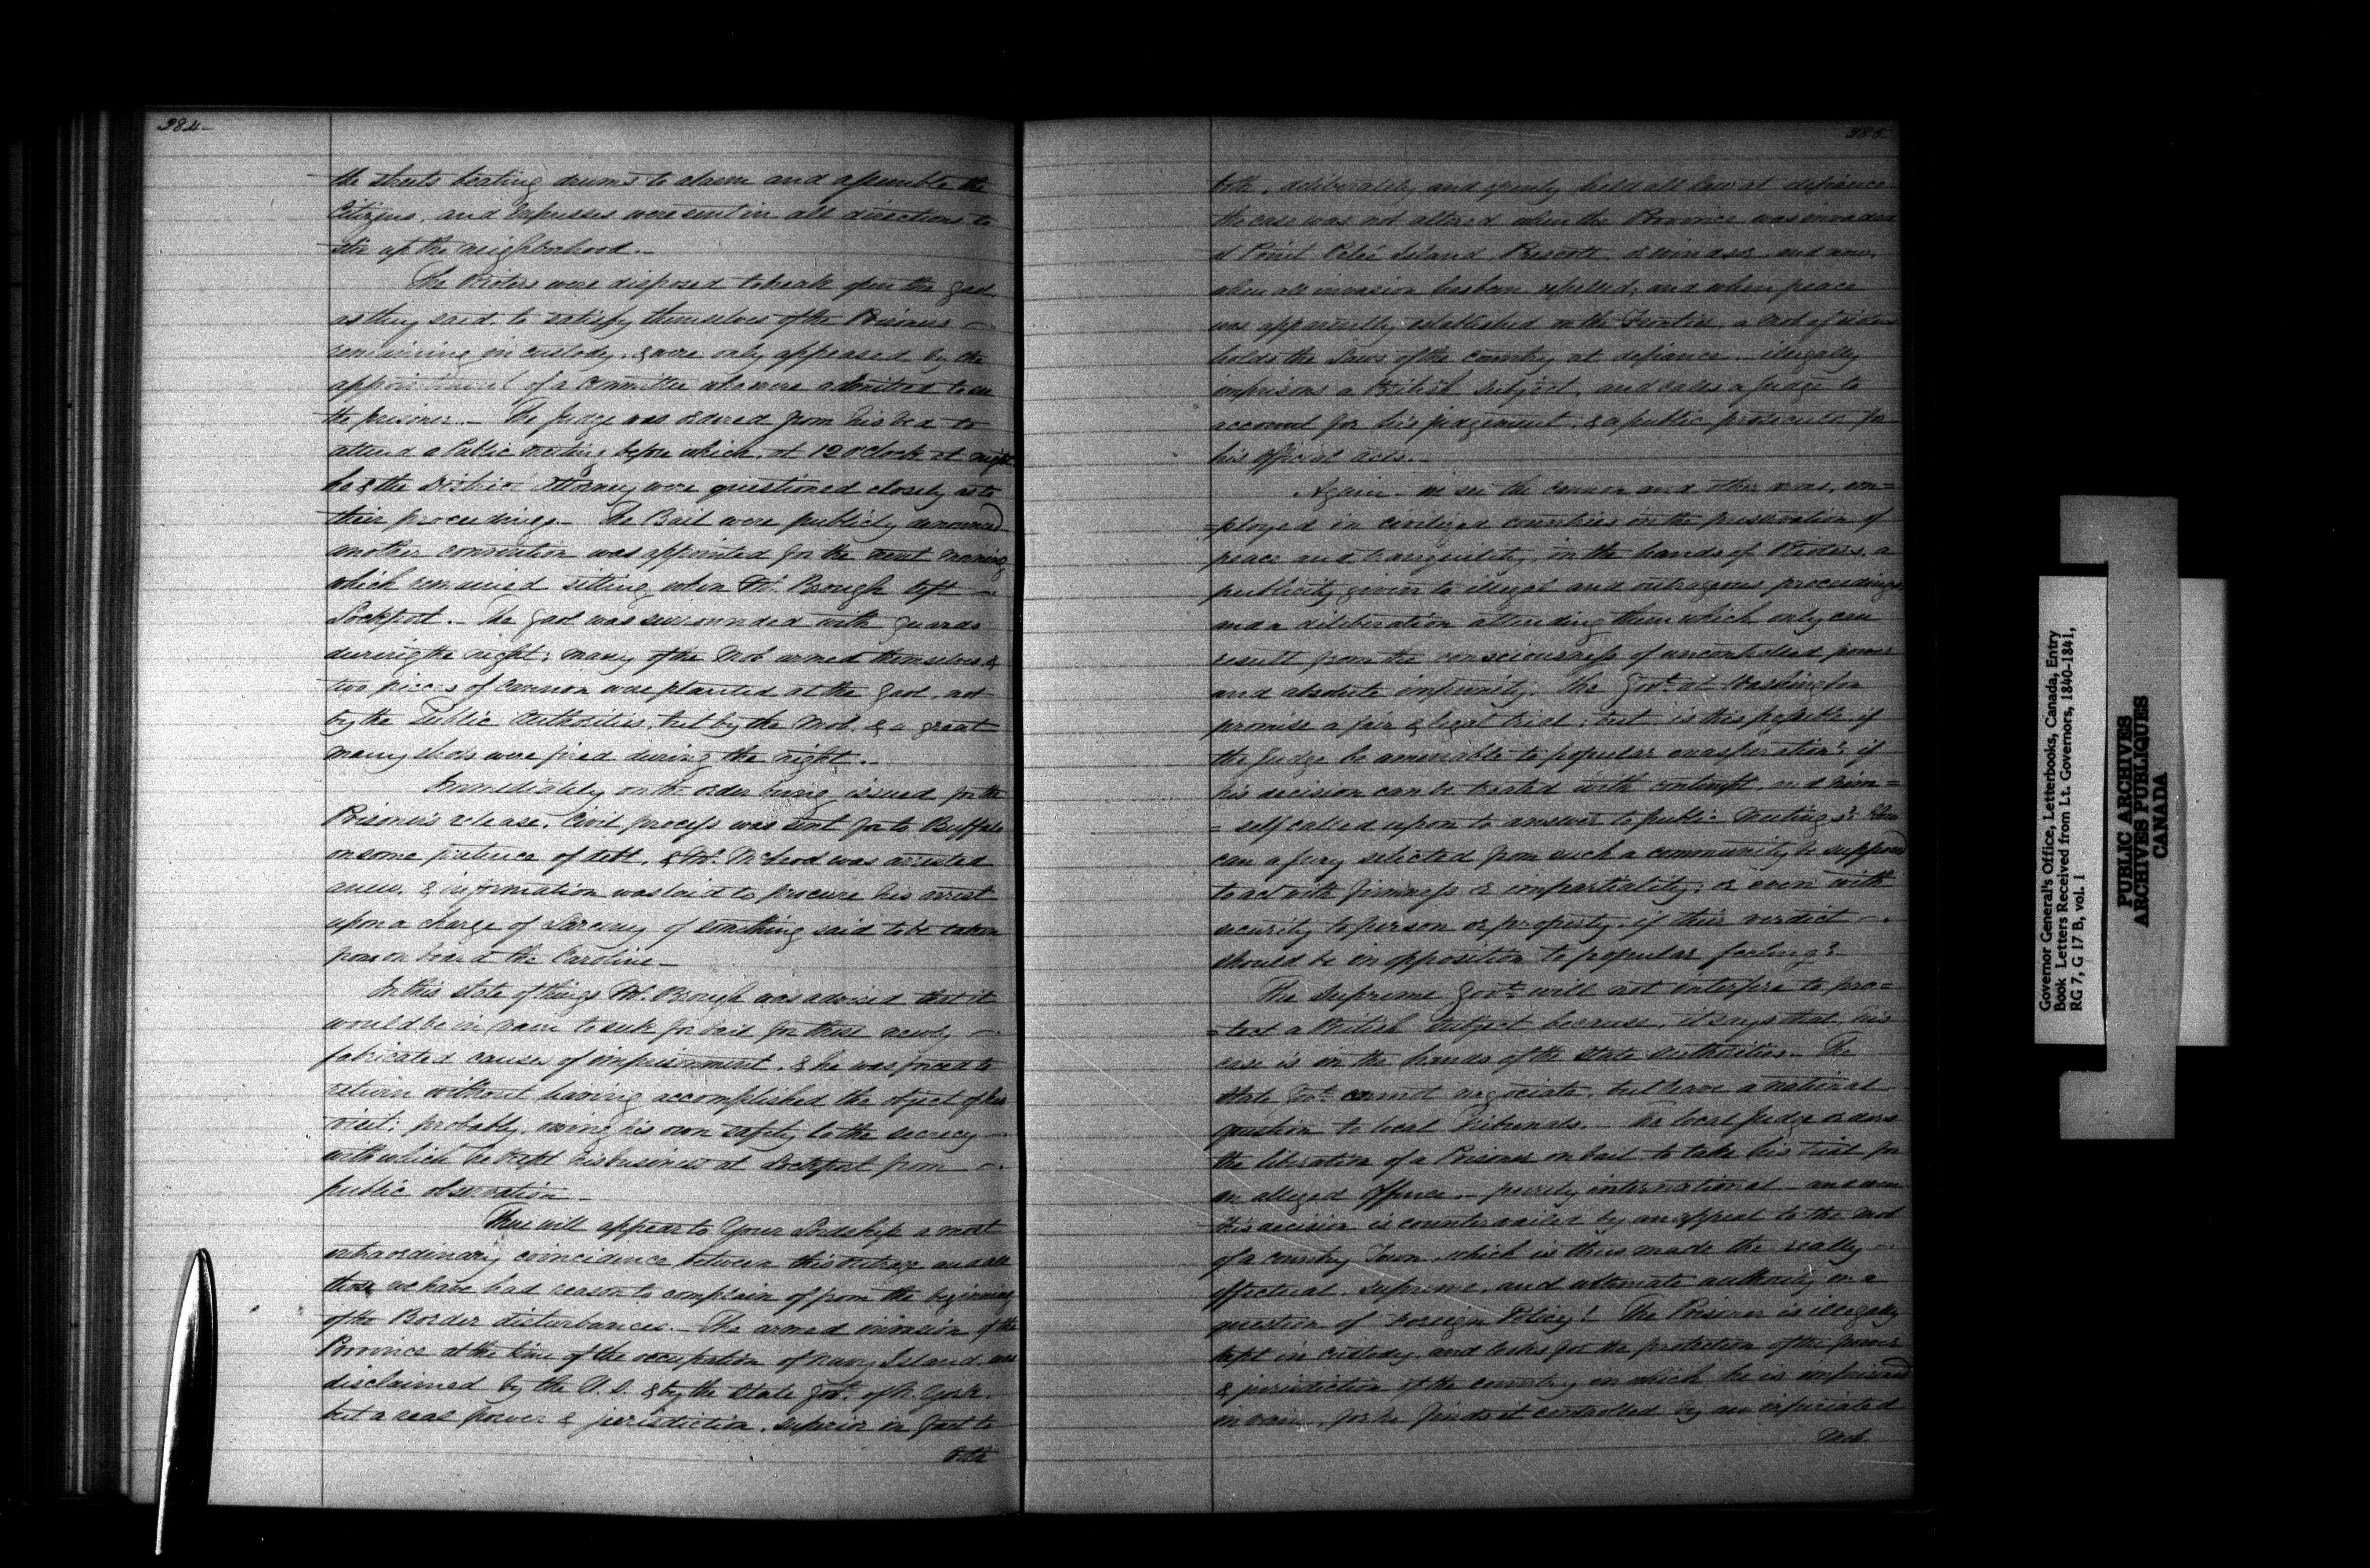 384
the streets beating drums to alarm and assemble the
Citizens, and Expresses were sent in all directions to
stir up the neighborhood.
The Rioters were disposed to break open the gaol
as they said, to satisfy themselves of the Prisoners
remaining in custody, & were only appeased by the
appointment of a committee who were admitted to see
the prisoner. The Judge was ordered from his bed to
attend a Public meeting before which, at 12 o'Clock at night
he & the District Attorney were questioned closely as to
their proceedings. The Bail were publicly denounced
another convention was appointed for the next morning
which remained sitting when Mr. Brough left
Lockport. The gaol was surrounded with guards
during the night; many of the Mob armed themselves, &
two pieces of Cannon were planted at the gaol, not
by the Public Authorities, but by the Mob, & a great
many shots were fired during the night.
Immediately on the order being issued for the
Prisoner's release, Civil process was sent for to Buffalo
on some pretence of debt, & Mr. McLeod was arrested
anew, & information was laid to procure his arrest
upon a charge of Larceny of something said to be taken
from on board the Caroline
In this state of things Mr. Brough was advised that it
would be in vain to seek for bail for these newly
fabricated causes of imprisonment, & he was forced to
return without having accomplished the object of his
visit; probably, owing his own safety to the secrecy
with which he kept his business at Lockport from
public observation
There will appear to Your Lordship a most
extraordinary coincidence between this outrage and all
those we have had reason to complain of from the beginning
of the Border disturbances. The armed invasion of the
Province at the time of the occupation of Navy Island was
disclaimed by the U.S. & by the State Govt. of N. York.
but a real power & jurisdiction, superior in fact to
both
385
both, deliberately and openly held all Law at defiance
the case was not altered when the Province was invaded
at Point Pelé Island Prescott or Windsor, and now,
when all invasion has been repelled; and when peace
was apparently established on the Frontier, a mob of rioters
holds the Laws of the country at defiance. illegally
imprisons a British subject, and calls a Judge to
account for his judgement, & a public prosecutor for
his official acts.
Again we see the cannon and other arms, em=
=ployed in civilized countries in the preservation of
peace and tranquility, in the hands of Rioters, a
publicity given to illegal and outrageous proceedings
and a deliberation attending them which only can
result from the consciousness of uncontrolled power
and absolute impunity. The Govt. at Washington
promise a fair & legal trial; but is this possible, if
the Judge be amenable to popular exasperation? if
his decision can be treated with contempt, and him=
=self called upon to answer to public Meetings? How
can a jury selected from such a community be supposed
to act with firmness & impartiality; or even with
security to person or property, if their verdict
should be in opposition to popular feeling?
The Supreme Govt. will not interfere to pro=
=tect a British subject because, it says that, his
case is in the hands of the State Authorities. The
State Govt. cannot negociate, but leave a national
question to local Tribunals. The local Judge orders
the liberation of a Prisoner on bail to take his trial for
an alleged offence purely international and even
this decision is countervailed by an appeal to the Mob
of a country Town, which is thus made the really
effectual, supreme, and ultimate authority in a
question of Foreign Policy! The Prisoner is illegally
kept in custody, and looks for the protection of the power
& jurisdiction of the country in which he is imprisoned
in vain, for he finds it controlled by an infuriated
Mob
Governor General's Office, Letterbooks, Canada, Entry
Book Letters Received from Lt. Governors, 1840-1841,
RG 7, G 17 B, vol. 1
PUBLIC ARCHIVES
ARCHIVES PUBLIQUES
CANADA